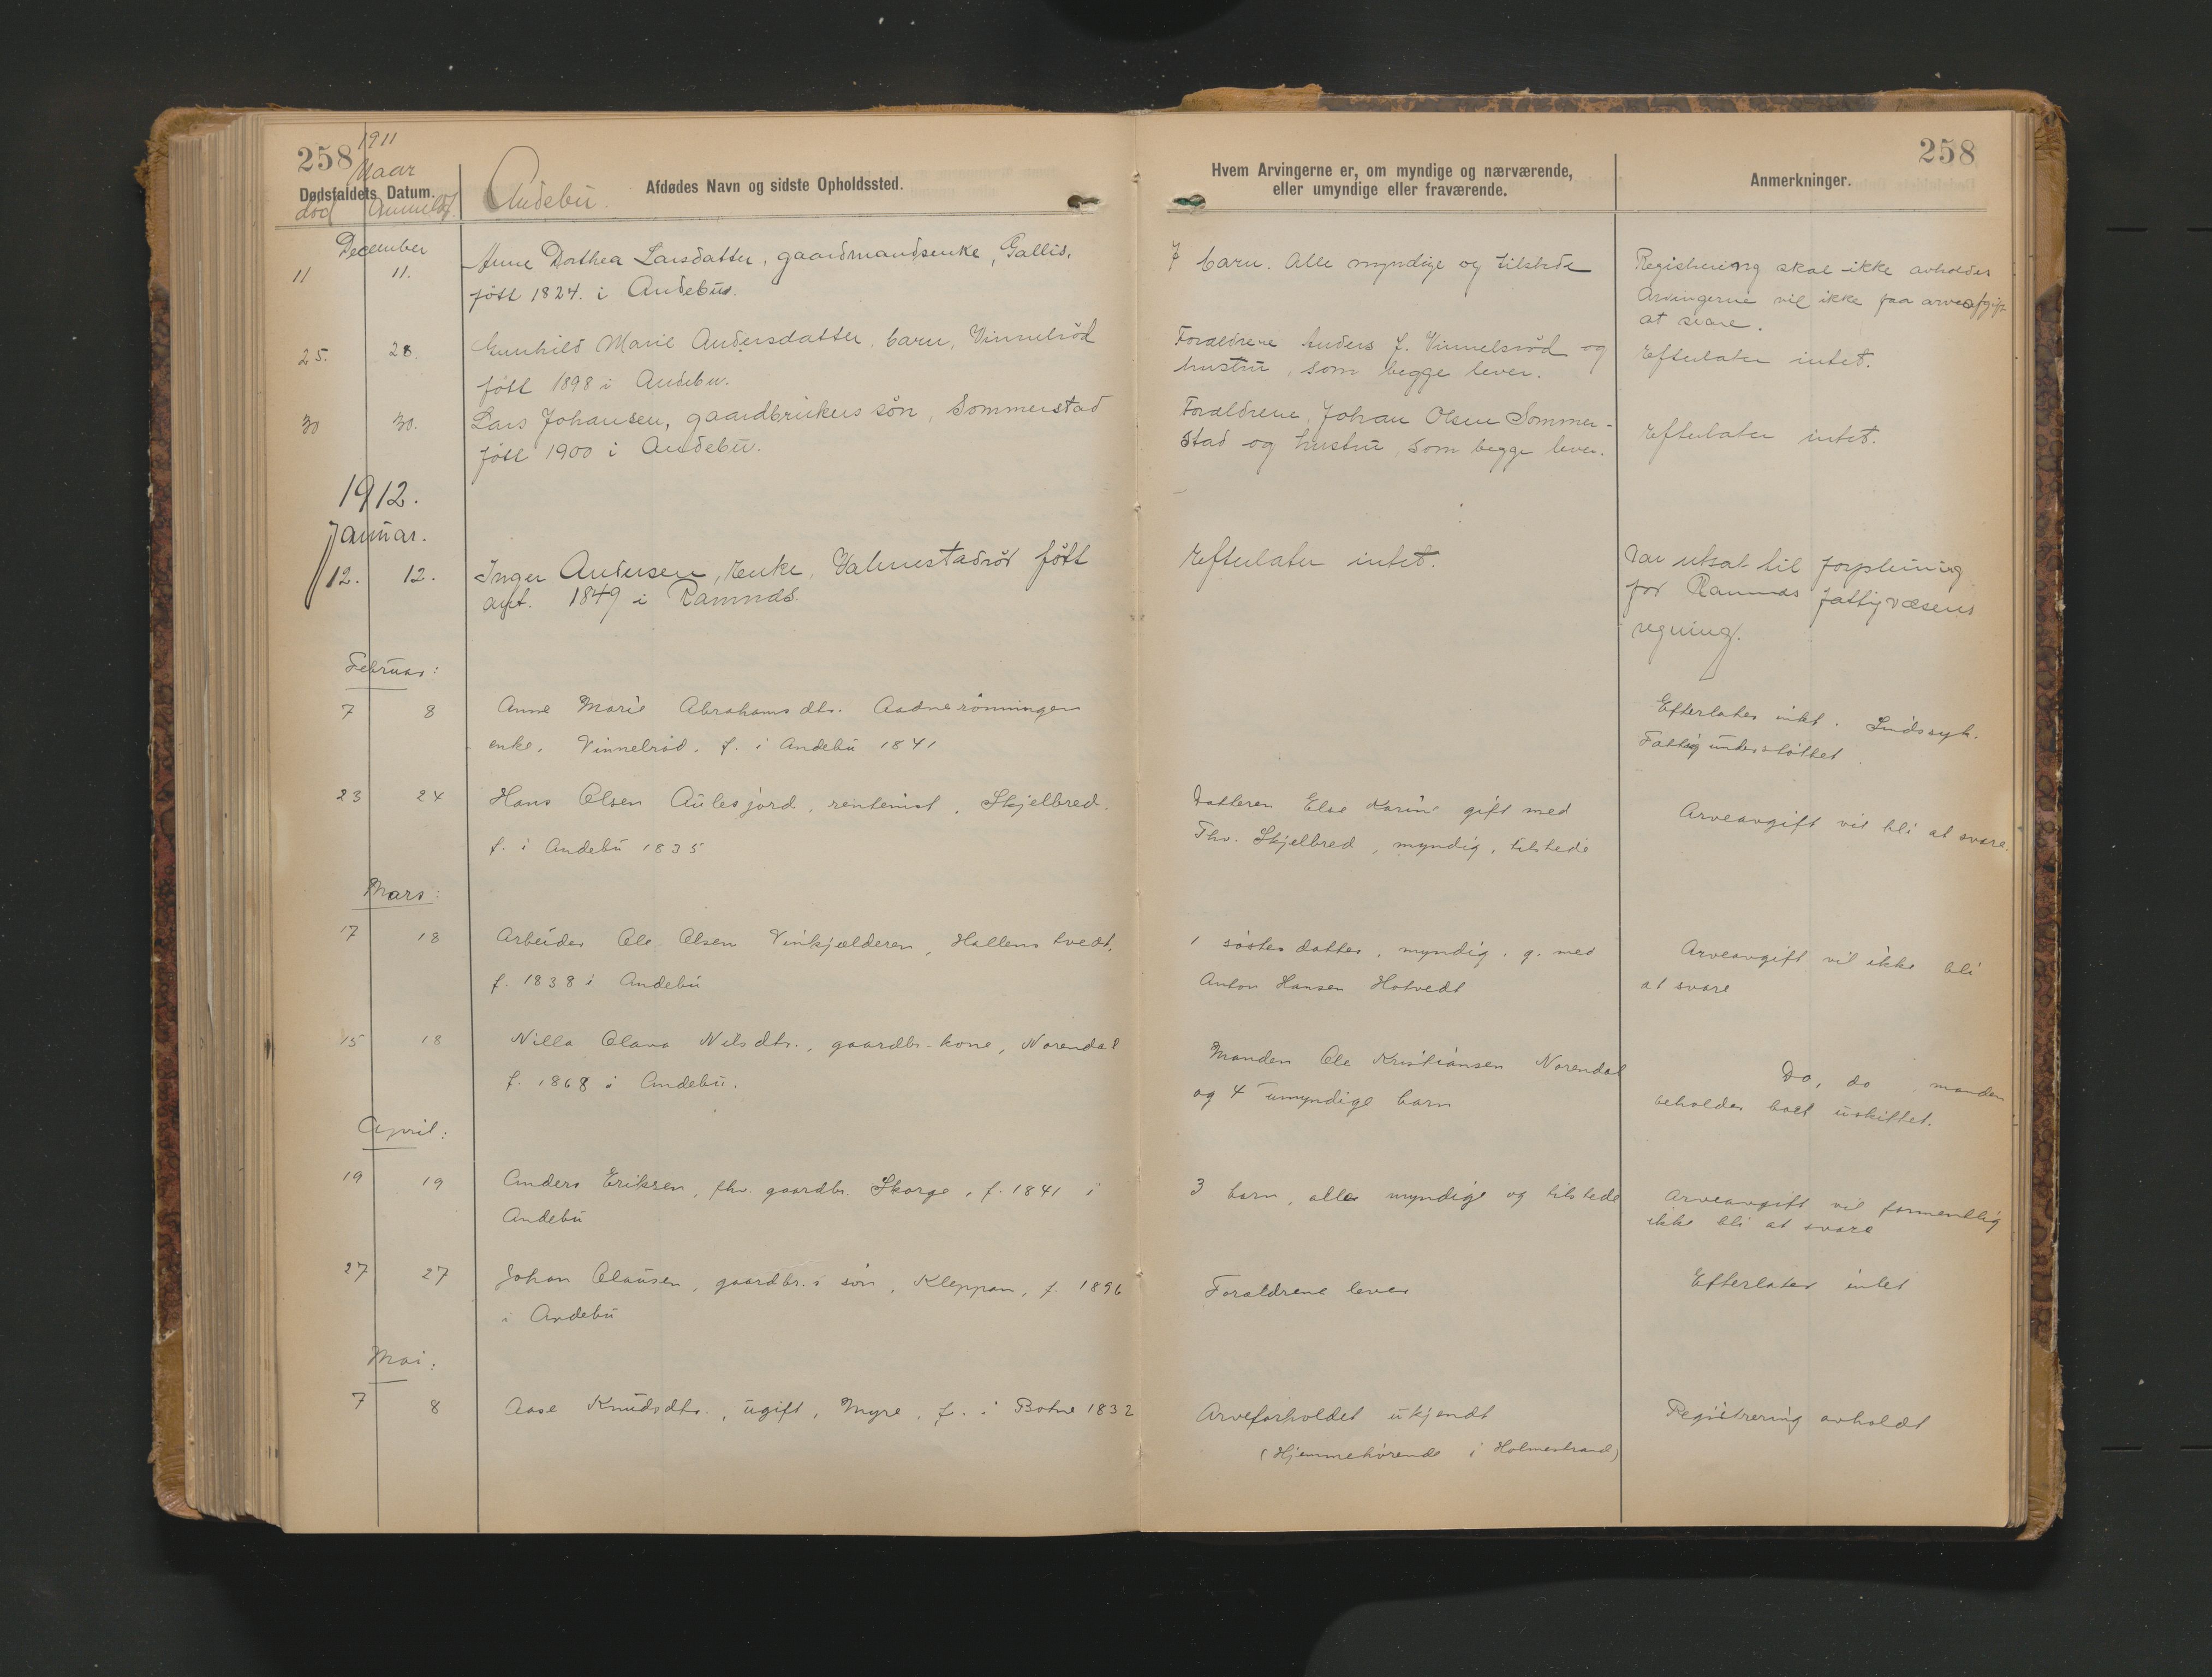 258
1911
Naar
Dødsfaldets Datum.
død Anmeldt.
Andebu.
Afdødes Navn og sidste Opholdssted.
December
11 11. Anne Dorthea Larsdatter, gaardmandsenke, Gallis,
født 1824. i Andebu.
25. 28. Gunhild Marie Andersdatter, barn, Vinnelrød
født 1898 i Andebu.
30 30. Lars Johansen, gaardbrukers søn, Sommerstad
født 1900 i Andebu.
1912.
Januar.
12. 12. Inger Andersen, Enke, Valmestadrød født
1849 i Ramnæs.
Februar:
7 8 Anne Marie Abrahamsdtr. Aadnerønningen
enke, Vinnelrød. f. i Andebu 1841
23 24 Hans Olsen Aulesjord, rentenist, Skjelbred.
f. i Andebu 1835
Mars:
17 18 Arbeider Ole Olsen Vinkjælderen, Hallenstvedt,
f. 1838 i Andebu
15 18 Nilla Olava Nilsdtr., gaardbr.-kone, Norendal
f. 1868 i Andebu.
April:
19 19 Anders Eriksen, fhv. gaardbr. Skorge, f. 1841 i
Andebu
27 27 Johan Clausen, gaardbr.s søn, Kleppan, f. 1896
i Andebu
Mai:
7 8 Aase Knudsdtr., ugift, Myre, f. i Botne 1832
258
Hvem Arvingerne er, om myndige og nærværende,
eller umyndige eller fraværende.
Anmerkninger.
7 barn. Alle myndige og tilstede
Registrering skal ikke avholdes
Arvingerne vil ikke faa arveafgift
at svare.
Forældrene Anders f. Vinnelsrød og
hustru, som begge lever.
Efterlater intet.
Forældrene, Johan Olsen Sommer-
stad og hustru, som begge lever.
Efterlater intet.
Efterlater intet.
Var utsat til forpleining
for Ramnæs fattigvæsens
regning.
Efterlater intet. Sindssyk.
Fattigunderstøttet
Datteren Else Karine gift med
Thv. Skjelbred, myndig, tilstede
Arveavgift vil bli at svare.
1 søsterdatter, myndig. g. med
Anton Hansen Hotvedt
Arveavgift vil ikke bli
at svare
Manden Ole Kristiansen Norendal
og 4 umyndige barn
Do, do, manden
beholder boet uskiftet.
3 barn, alle myndige og tilstede
Arveavgift vil formentlig
ikke bli at svare
Forældrene lever
Efterlater intet
Arveforholdet ukjendt
(Hjemmehørende i Holmestrand)
Registrering avholdt